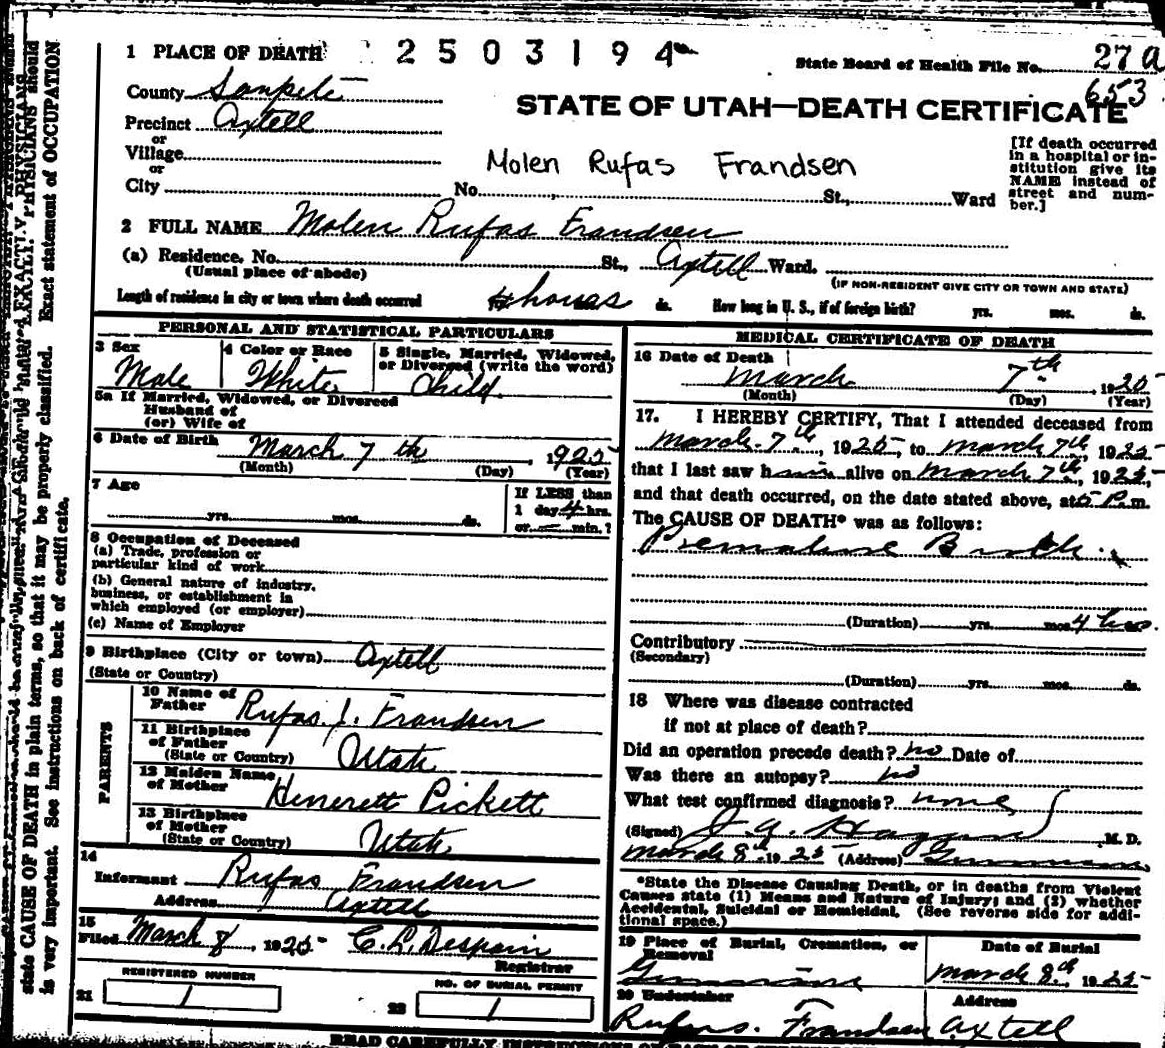 1 PLACE OF DEATH 2503194 State Board of Health File No. 27a
653
County Sanpete
STATE OF UTAH—DEATH CERTIFICATE
Precinct Axtell
or
Village
or
City No. St., Ward
Molen Rufas Frandsen
[If death occurred in a hospital or institution give its NAME instead of street and number.]
2 FULL NAME Molen Rufas Frandsen
(a) Residence, No. St., Axtell Ward.
(Usual place of abode) (IF NON-RESIDENT GIVE CITY OR TOWN AND STATE)
Length of residence in city or town where death occurred 4 hours ds. How long in U. S., if of foreign birth? yrs. mos. ds.
PERSONAL AND STATISTICAL PARTICULARS
3 Sex Male
4 Color or Race White
5 Single, Married, Widowed, or Divorced (write the word) Child.
5a If Married, Widowed, or Divorced
Husband of
(or) Wife of
6 Date of Birth March 7th, 1925
(Month) (Day) (Year)
7 Age
yrs. mos. ds.
If LESS than
1 day 4 hrs.
or — min.?
8 Occupation of Deceased
(a) Trade, profession or
particular kind of work
(b) General nature of industry,
business, or establishment in
which employed (or employer)
(c) Name of Employer
9 Birthplace (City or town) Axtell
(State or Country)
PARENTS
10 Name of Father Rufas J. Frandsen
11 Birthplace of Father
(State or Country) Utah
12 Maiden Name of Mother Henerett Pickett
13 Birthplace of Mother
(State or Country) Utah
14
Informant Rufas Frandsen
Address Axtell
15
Filed March 8, 1925 C. L. Despain
Registrar
REGISTERED NUMBER
21 1
NO. OF BURIAL PERMIT
22 1
MEDICAL CERTIFICATE OF DEATH
16 Date of Death
March 7th 1925
(Month) (Day) (Year)
17. I HEREBY CERTIFY, That I attended deceased from
March 7th, 1925, to March 7th, 1925
that I last saw h alive on March 7th, 1925,
and that death occurred, on the date stated above, at 5 P.m.
The CAUSE OF DEATH* was as follows:
Premature Birth.
(Duration) yrs. mos. 4 hrs.
Contributory
(Secondary)
(Duration) yrs. mos. ds.
18 Where was disease contracted
if not at place of death?
Did an operation precede death? no Date of
Was there an autopsy? no
What test confirmed diagnosis? none
(Signed) M. D.
March 8th. 1925 (Address) Gunnison,
*State the Disease Causing Death, or in deaths from Violent
Causes state (1) Means and Nature of Injury; and (2) whether
Accidental, Suicidal or Homicidal. (See reverse side for additional space.)
19 Place of Burial, Cremation, or Removal
Gunnison
Date of Burial
March 8th. 1925
20 Undertaker
Rufas. Frandsen
Address
Axtell
state CAUSE OF DEATH in plain terms, so that it may be properly classified. Exact statement of OCCUPATION
is very important. See instructions on back of certificate.